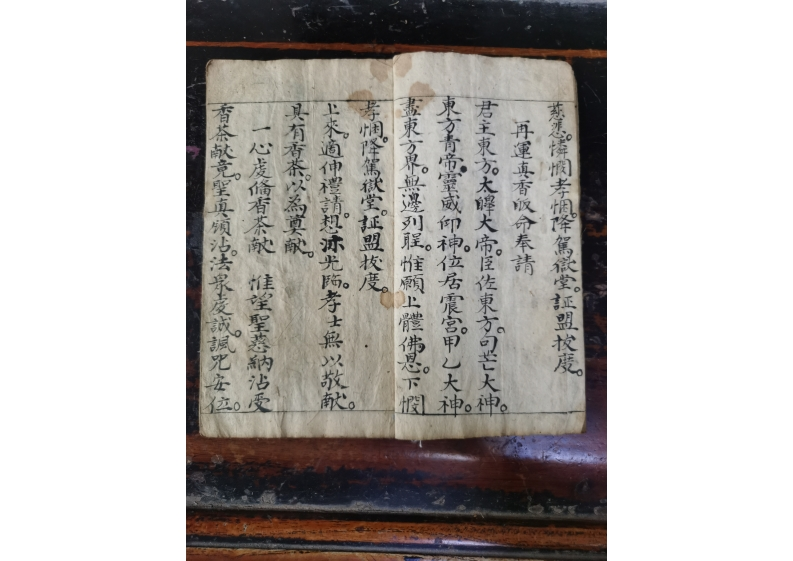 慈悲。憐憫孝悃。降駕嶽堂。証盟拔度。
再運真香皈命奉請
君主東方。太皥大帝。臣佐東方。句芒大神。
東方青帝。靈威仰神。位居震宮。甲乙大神。
盡東方界。無邊列聖。惟願上體佛恩。下憫
孝悃。降駕嶽堂。証盟拔度。
上來適伸禮請。想沐光臨。孝士無以敬献。
具有香茶。以為奠献。
一心虔俻香茶献 惟望聖慈納沾受
香茶献竟。聖真領沾。法衆虔誠。諷咒安位。